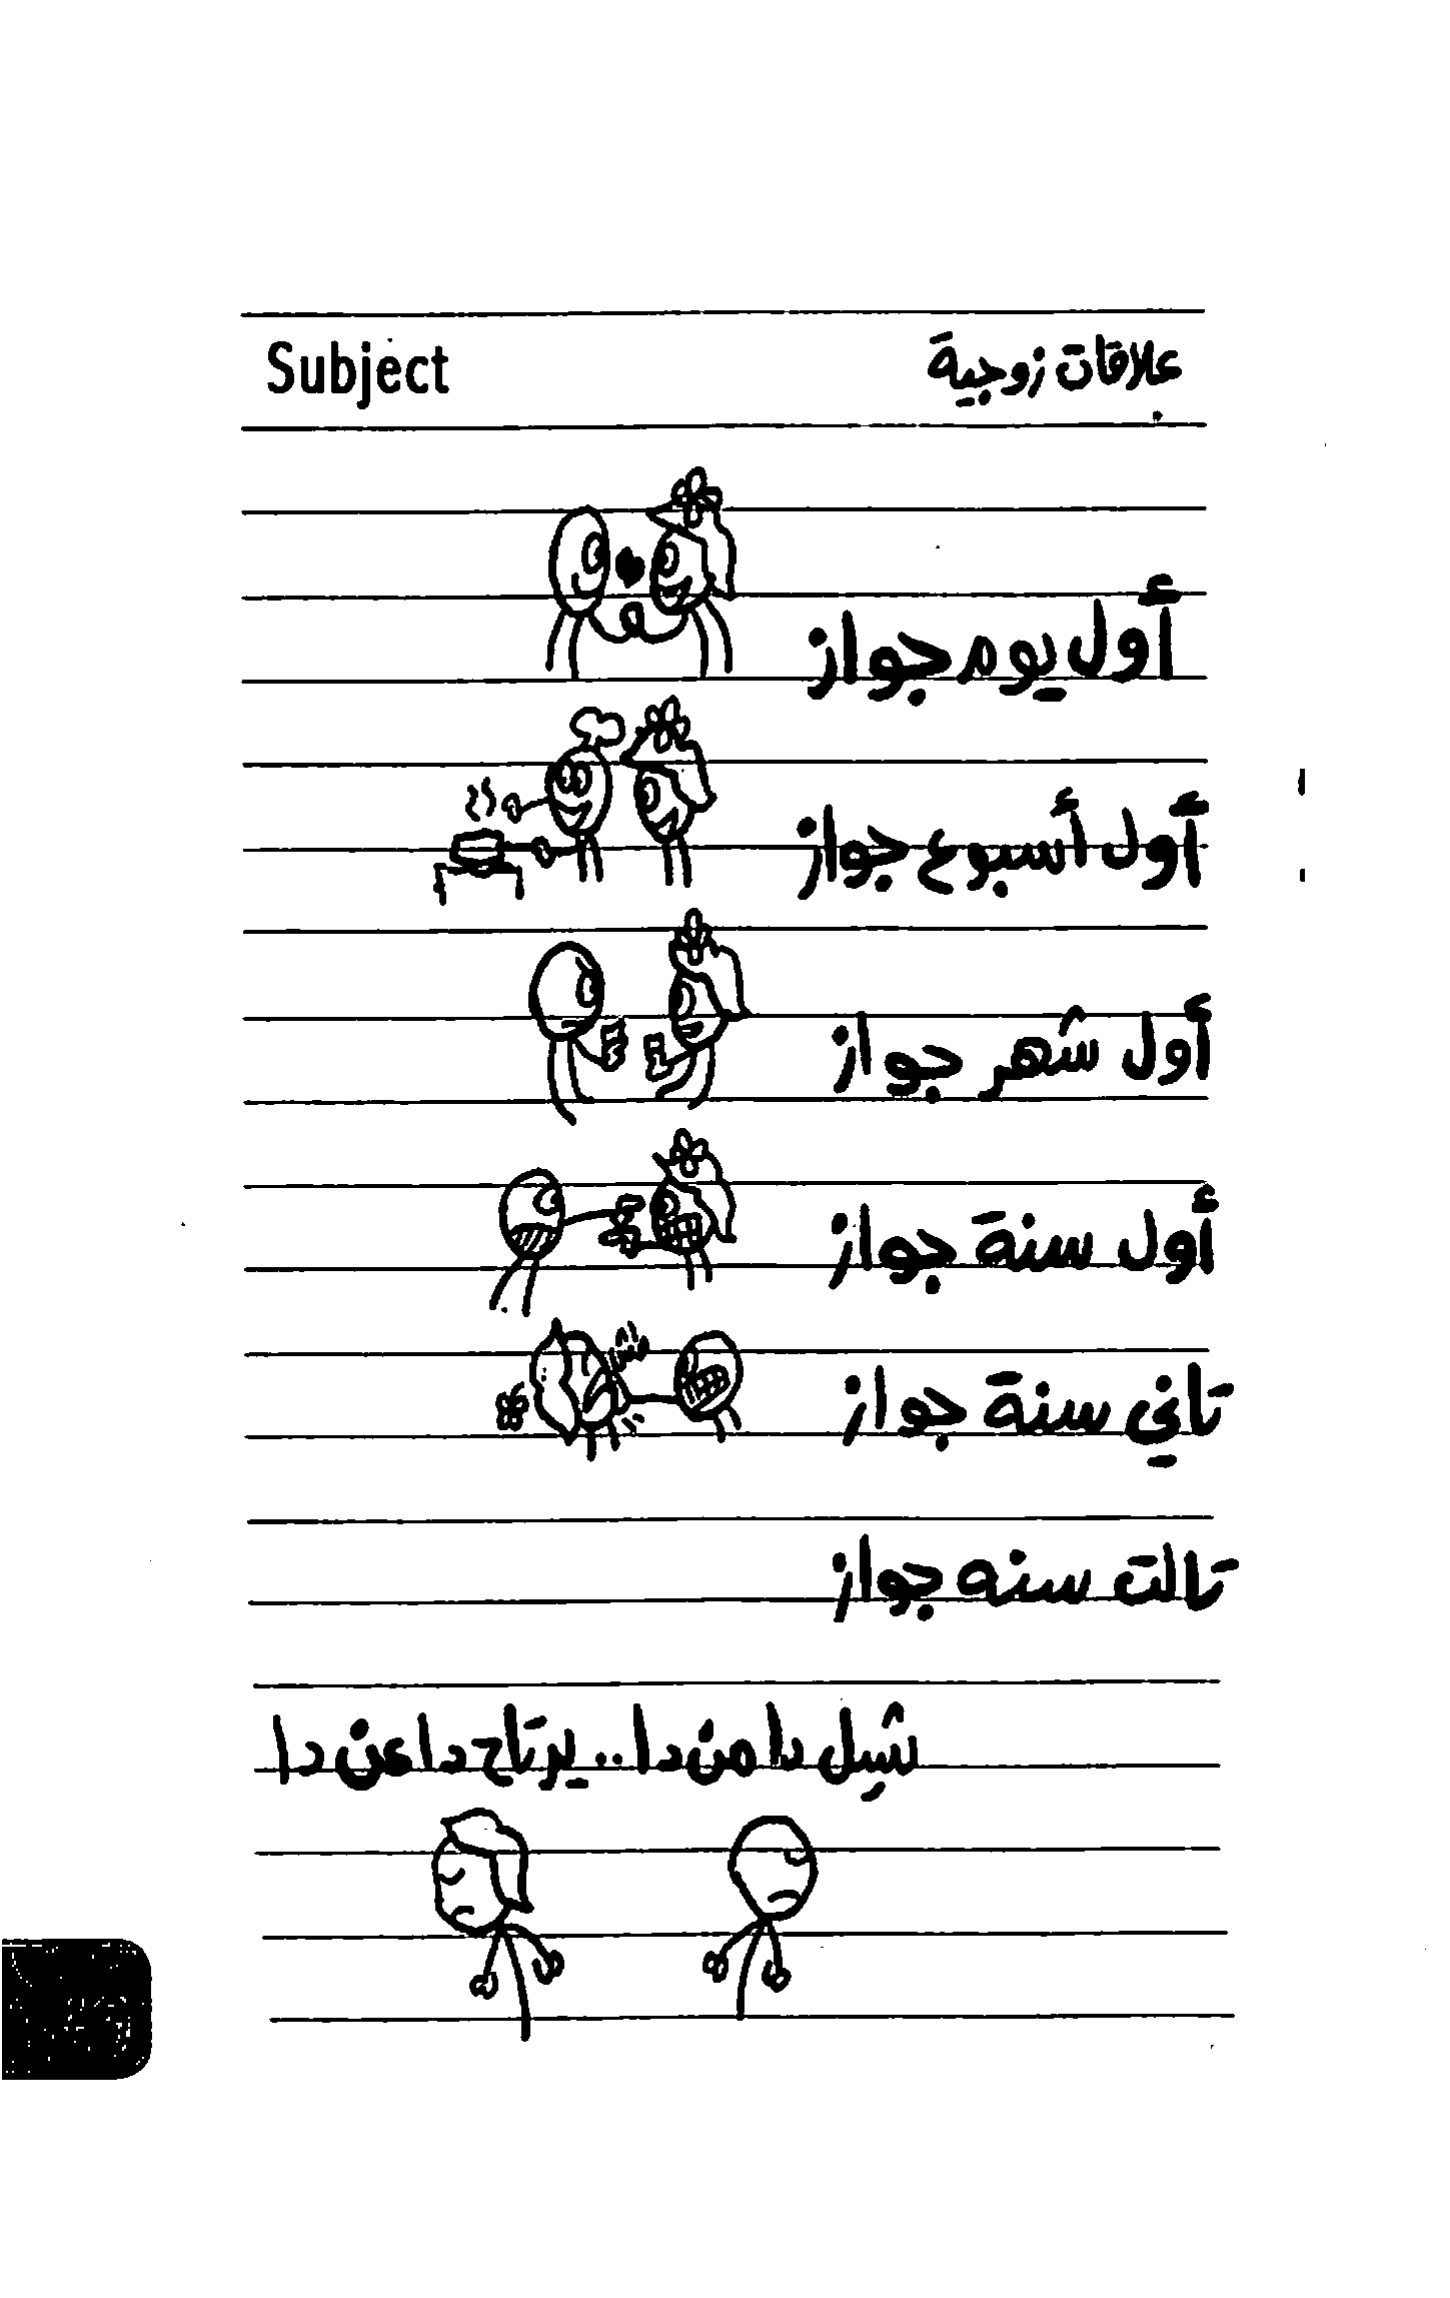 Subject علاقات زوجية
أول يوم جواز
أول أسبوع جواز
أول شهر جواز
أول سنة جواز
تاني سنة جواز
تالت سنه جواز
شيل دا من دا .. يرتاح دا عن دا